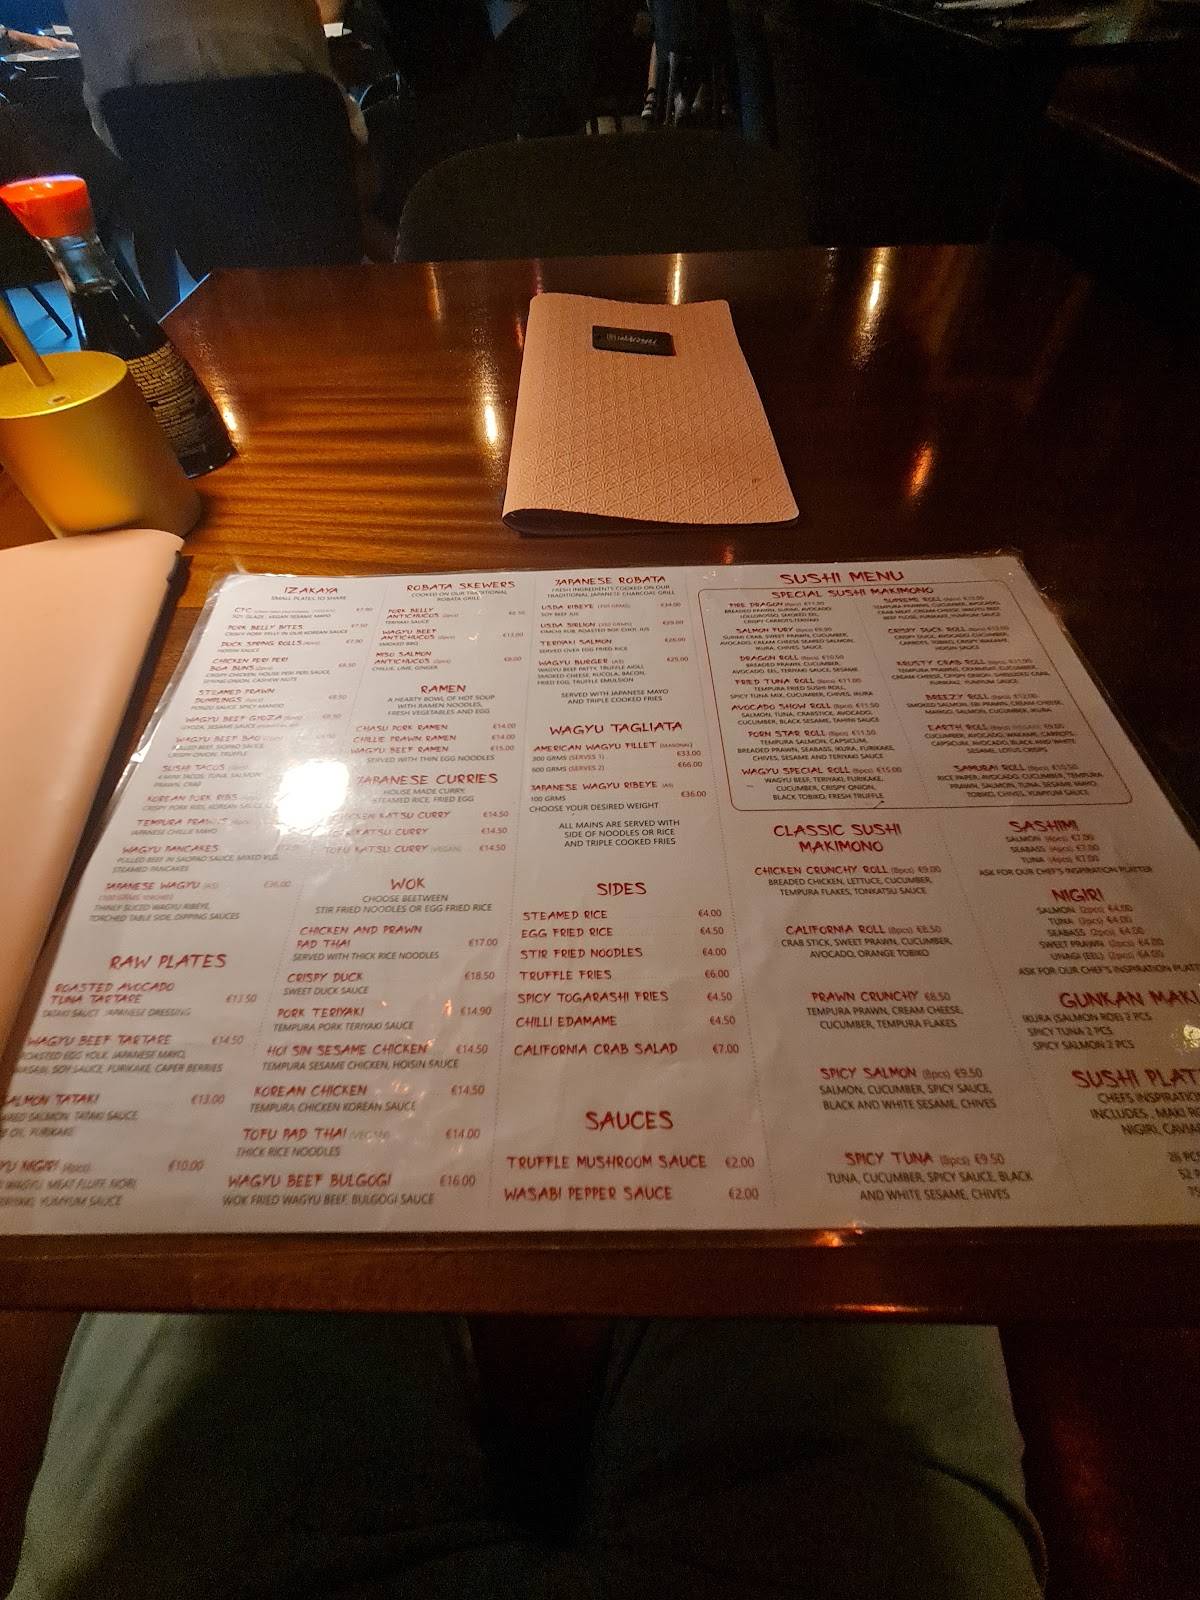 IZAKAYA
SMALL PLATES TO SHARE
CFC €7.90
SOY GLAZE, VEGAN SESAME MAYO
PORK BELLY BITES €7.50
CRISPY PORK BELLY IN OUR KOREAN SAUCE
DUCK SPRING ROLLS €7.90
HOISIN SAUCE
CHICKEN PERI PERI
BAO BUNS €8.50
CRISPY CHICKEN, HOUSE PERI PERI SAUCE,
SPRING ONION, CASHEW NUTS
STEAMED PRAWN
DUMPLINGS €8.50
PONZO SAUCE, SPICY MANGO
WAGYU BEEF GYOZA
WAGYU BEEF BAO
PULLED BEEF
CRISPY ONION, TRUFFLE
SUSHI TACOS
4 MINI TACOS, TUNA, SALMON
PRAWN, CRAB
KOREAN PORK RIBS
CRISPY PORK RIBS, KOREAN SAUCE
TEMPURA PRAWNS
JAPANESE CHILLIE MAYO
WAGYU PANCAKES
STEAMED PANCAKES
JAPANESE WAGYU (A5) €36.00
THINLY SLICED WAGYU RIBEYE,
TORCHED TABLE SIDE, DIPPING SAUCES
RAW PLATES
ROASTED AVOCADO
TUNA TARTARE €13.50
TATAKI SAUCE, JAPANESE DRESSING
WAGYU BEEF TARTARE €14.50
ROASTED EGG YOLK, JAPANESE MAYO,
WASABI, SOY SAUCE, FURIKAKE, CAPER BERRIES
SALMON TATAKI €13.00
SALMON, TATAKI SAUCE,
OIL, FURIKAKE
NIGIRI (4pcs) €10.00
WAGYU MEAT FLUFF, NORI,
TERIYAKI, YUMYUM SAUCE
ROBATA SKEWERS
COOKED ON OUR TRADITIONAL
ROBATA GRILL
PORK BELLY
ANTICHUCOS (2pcs) €8.50
TERIYAKI SAUCE
WAGYU BEEF
ANTICHUCOS (2pcs) €13.00
SMOKED BBQ
MISO SALMON
ANTICHUCOS (2pcs) €9.00
CHILLIE, LIME, GINGER
RAMEN
A HEARTY BOWL OF HOT SOUP
WITH RAMEN NOODLES,
FRESH VEGETABLES AND EGG
CHASU PORK RAMEN €14.00
CHILLIE PRAWN RAMEN €14.00
WAGYU BEEF RAMEN €15.00
SERVED WITH THIN EGG NOODLES
JAPANESE CURRIES
HOUSE MADE CURRY,
STEAMED RICE, FRIED EGG
CHICKEN KATSU CURRY €14.50
KATSU CURRY €14.50
TOFU KATSU CURRY (VEGAN) €14.50
WOK
CHOOSE BEETWEEN
STIR FRIED NOODLES OR EGG FRIED RICE
CHICKEN AND PRAWN
PAD THAI €17.00
SERVED WITH THICK RICE NOODLES
CRISPY DUCK €18.50
SWEET DUCK SAUCE
PORK TERIYAKI €14.90
TEMPURA PORK TERIYAKI SAUCE
HOI SIN SESAME CHICKEN €14.50
TEMPURA SESAME CHICKEN, HOISIN SAUCE
KOREAN CHICKEN €14.50
TEMPURA CHICKEN KOREAN SAUCE
TOFU PAD THAI (VEGAN) €14.00
THICK RICE NOODLES
WAGYU BEEF BULGOGI €16.00
WOK FRIED WAGYU BEEF, BULGOGI SAUCE
JAPANESE ROBATA
FRESH INGREDIENTS COOKED ON OUR
TRADITIONAL JAPANESE CHARCOAL GRILL
USDA RIBEYE €34.00
SOY BEEF JUS
USDA SIRLOIN €29.00
KIMCHI RUB, ROASTED BOK CHOI, JUS
TERIYAKI SALMON €26.00
SERVED OVER EGG FRIED RICE
WAGYU BURGER (A5) €25.00
WAGYU BEEF PATTY, TRUFFLE AIOLI,
SMOKED CHEESE, RUCOLA, BACON,
FRIED EGG, TRUFFLE EMULSION
SERVED WITH JAPANESE MAYO
AND TRIPLE COOKED FRIES
WAGYU TAGLIATA
AMERICAN WAGYU FILLET
300 GRMS (SERVES 1) €33.00
600 GRMS (SERVES 2) €66.00
JAPANESE WAGYU RIBEYE (A5)
100 GRMS €36.00
CHOOSE YOUR DESIRED WEIGHT
ALL MAINS ARE SERVED WITH
SIDE OF NOODLES OR RICE
AND TRIPLE COOKED FRIES
SIDES
STEAMED RICE €4.00
EGG FRIED RICE €4.50
STIR FRIED NOODLES €4.00
TRUFFLE FRIES €6.00
SPICY TOGARASHI FRIES €4.50
CHILLI EDAMAME €4.50
CALIFORNIA CRAB SALAD €7.00
SAUCES
TRUFFLE MUSHROOM SAUCE €2.00
WASABI PEPPER SAUCE €2.00
SUSHI MENU
SPECIAL SUSHI MAKIMONO
FIRE DRAGON (8pcs) €11.50
BREADED PRAWN, SURIMI, AVOCADO,
LOLLOROSSO, SMOKED EEL,
CRISPY CARROTS, TERIYAKI
SALMON FURY (8pcs) €9.90
SURIMI CRAB, SWEET PRAWN, CUCUMBER,
AVOCADO, CREAM CHEESE SEARED SALMON,
IKURA, CHIVES, SAUCE
DRAGON ROLL (8pcs) €10.50
BREADED PRAWN, CUCUMBER,
AVOCADO, EEL, TERIYAKI SAUCE, SESAME
FRIED TUNA ROLL (8pcs) €11.00
TEMPURA FRIED SUSHI ROLL,
SPICY TUNA MIX, CUCUMBER, CHIVES, IKURA
AVOCADO SHOW ROLL (8pcs) €11.50
SALMON, TUNA, CRABSTICK, AVOCADO,
CUCUMBER, BLACK SESAME, TAHINI SAUCE
PORN STAR ROLL (8pcs) €11.50
TEMPURA SALMON, CAPSICUM,
BREADED PRAWN, SEABASS, IKURA, FURIKAKE,
CHIVES, SESAME AND TERIYAKI SAUCE
WAGYU SPECIAL ROLL (8pcs) €15.00
WAGYU BEEF, TERIYAKI, FURIKAKE,
CUCUMBER, CRISPY ONION,
BLACK TOBIKO, FRESH TRUFFLE
SUPREME ROLL
TEMPURA PRAWNS, CUCUMBER, AVOCADO,
CRAB MEAT, CREAM CHEESE, WAGYU BEEF,
BEEF FLOSS, FURIKAKE, YUMYUM SAUCE
CRISPY DUCK ROLL
CRISPY DUCK, AVOCADO, CUCUMBER,
CARROTS, TOBIKO, CRISPY WAKAME,
HOISIN SAUCE
KRUSTY CRAB ROLL €11.00
TEMPURA PRAWNS, CRABMEAT, CUCUMBER,
CREAM CHEESE, CRISPY ONION, SHREDDED CRAB,
FURIKAKE, YUMYUM SAUCE
BREEZY ROLL (8pcs) €12.00
SMOKED SALMON, EBI PRAWN, CREAM CHEESE,
MANGO, SALMON, CUCUMBER, IKURA
EARTH ROLL €9.00
CUCUMBER, AVOCADO, WAKAME, CARROTS,
CAPSICUM, AVOCADO, BLACK AND WHITE
SESAME, LOTUS CRISPS
SAMURAI ROLL (8pcs) €10.50
RICE PAPER, AVOCADO, CUCUMBER, TEMPURA
PRAWN, SALMON, TUNA, SESAME, MAYO,
TOBIKO, CHIVES, YUMYUM SAUCE
CLASSIC SUSHI
MAKIMONO
CHICKEN CRUNCHY ROLL (8pcs) €9.00
BREADED CHICKEN, LETTUCE, CUCUMBER,
TEMPURA FLAKES, TONKATSU SAUCE
CALIFORNIA ROLL (8pcs) €8.50
CRAB STICK, SWEET PRAWN, CUCUMBER,
AVOCADO, ORANGE TOBIKO
PRAWN CRUNCHY €8.50
TEMPURA PRAWN, CREAM CHEESE,
CUCUMBER, TEMPURA FLAKES
SPICY SALMON (8pcs) €9.50
SALMON, CUCUMBER, SPICY SAUCE,
BLACK AND WHITE SESAME, CHIVES
SPICY TUNA (8pcs) €9.50
TUNA, CUCUMBER, SPICY SAUCE, BLACK
AND WHITE SESAME, CHIVES
SASHIMI
SALMON (4pcs) €7.00
SEABASS (4pcs) €7.00
TUNA (4pcs) €7.00
ASK FOR OUR CHEF'S INSPIRATION PLATTER
NIGIRI
SALMON (2pcs) €4.00
TUNA (2pcs) €4.00
SEABASS (2pcs) €4.00
SWEET PRAWN (2pcs) €4.00
UNAGI (EEL) (2pcs) €4.00
ASK FOR OUR CHEF'S INSPIRATION PLATT
GUNKAN MAKI
IKURA (SALMON ROE) 2 PCS
SPICY TUNA 2 PCS
SPICY SALMON 2 PCS
SUSHI PLATT
CHEFS INSPIRATION
INCLUDES, MAKI RO
NIGIRI, CAVIAR
26 PCS
52 P